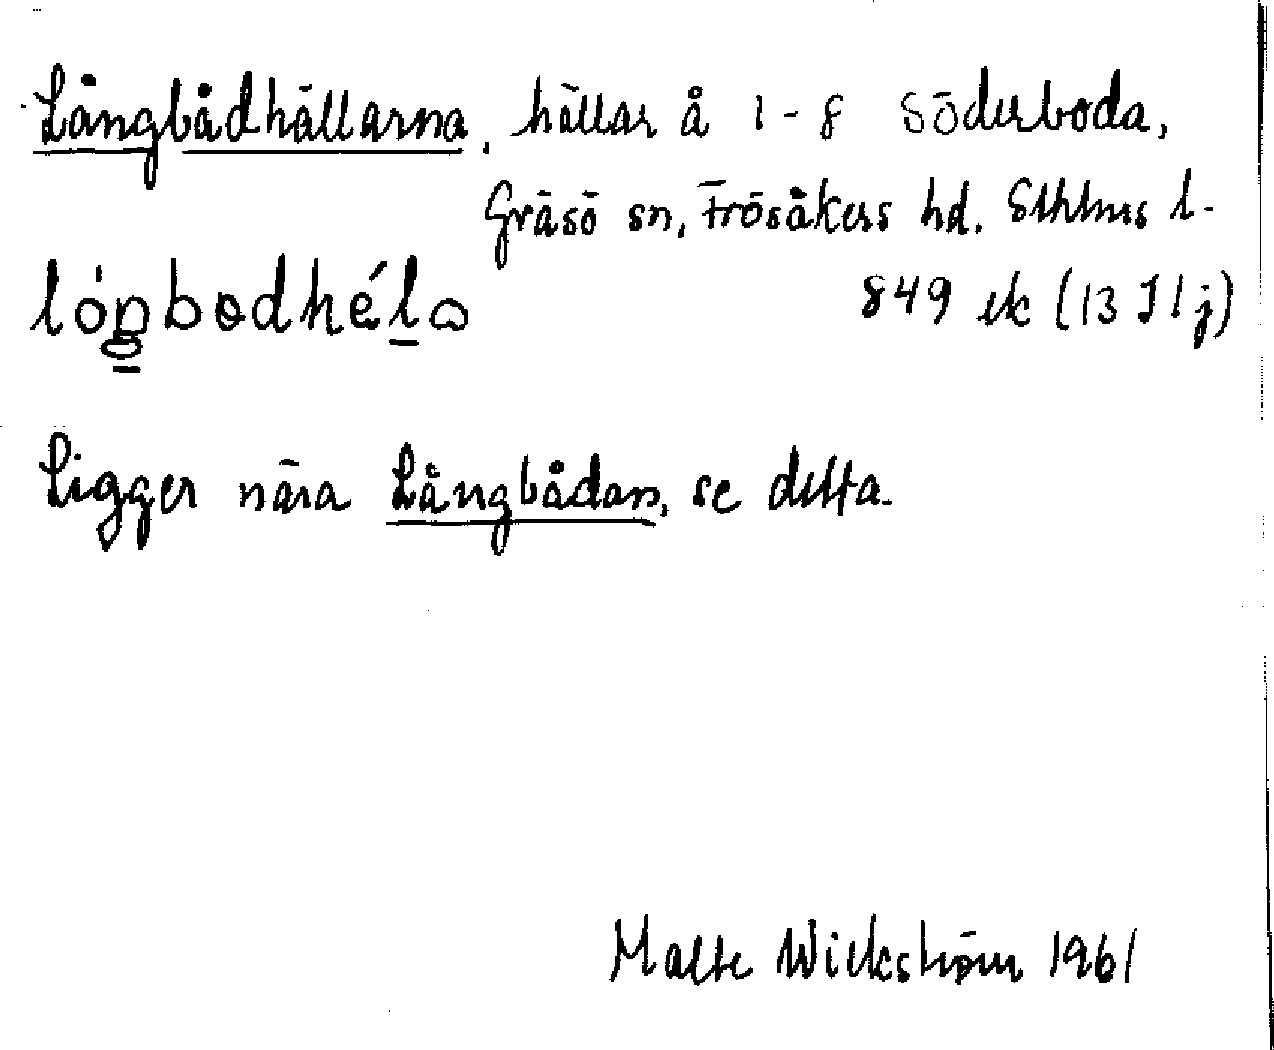 Långbådhällarna, hällar å 1-8 Söderboda,
Gräsö sn, Frösåkers hd. Sthlms l.
849 ek (13 I 1 j)
Ligger nära Långbådan, se detta.
Malte Wickström 1961